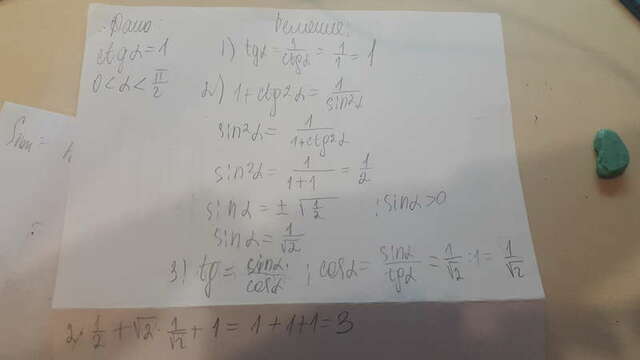 Дано:
ctgα = 1
0 < α < π/2
Решение:
1) tgα = 1/ctgα = 1/1 = 1
2) 1 + ctg²α = 1/sin²α
sin²α = 1/(1+ctg²α)
sin²α = 1/(1+1) = 1/2
sinα = ± √(1/2) ; sinα > 0
sinα = 1/√2
3) tg = sinα/cosα ; cosα = sinα/tgα = 1/√2 : 1 = 1/√2
2 · 1/2 + √2 · 1/√2 + 1 = 1 + 1 + 1 = 3